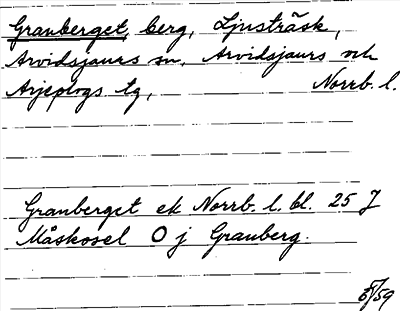 Granberget, berg, Ljusträsk,
Arvidsjaurs sn, Arvidsjaurs och
Arjeplogs tg, Norrb. l.
Granberget ek Norrb. l. bl. 25 J
Måskosel O j Granberg.
/59